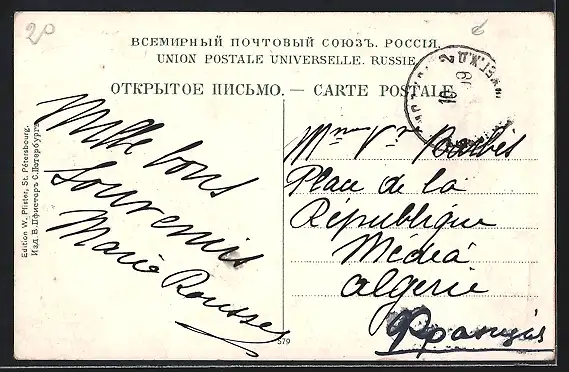 20
ВСЕМИРНЫЙ ПОЧТОВЫЙ СОЮЗЪ. РОССІЯ.
UNION POSTALE UNIVERSELLE. RUSSIE.
ОТКРЫТОЕ ПИСЬМО. — CARTE POSTALE.
Mille bons
souvenirs
Marie Rousset
Mme Vve Barbès
Place de la
République
Médéa
Algérie
Франція
Edition W. Pfister, St. Pétersbourg.
Изд. В. Пфистеръ С. Петербургъ
579